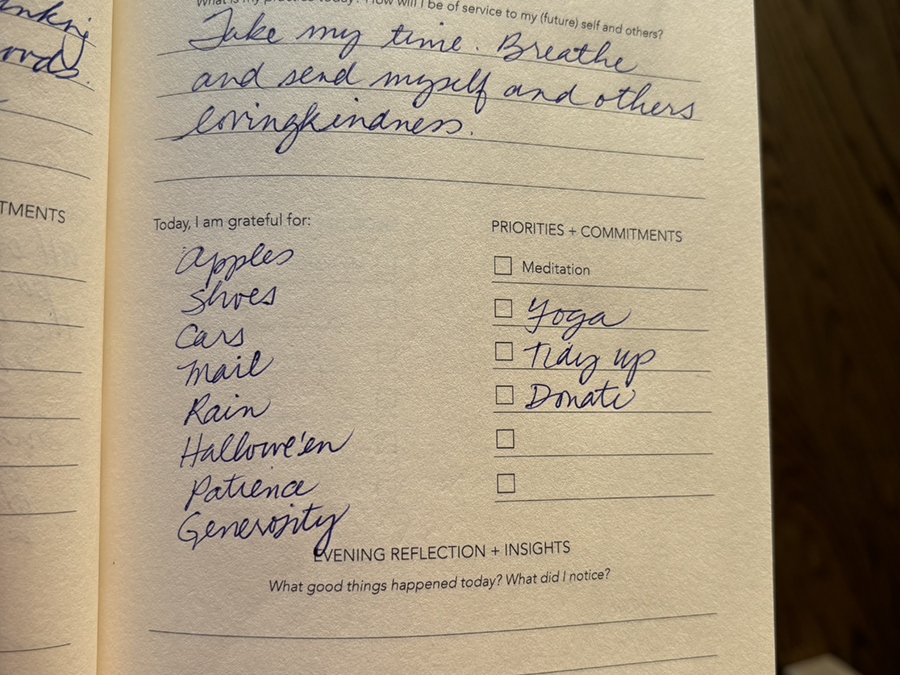 What is my practice today? How will I be of service to my (future) self and others?
Take my time. Breathe
and send myself and others
lovingkindness.
TMENTS
Today, I am grateful for:
Apples
Shoes
Cars
Mail
Rain
Hallowe'en
Patience
Generosity
PRIORITIES + COMMITMENTS
Meditation
Yoga
Tidy up
Donate
EVENING REFLECTION + INSIGHTS
What good things happened today? What did I notice?